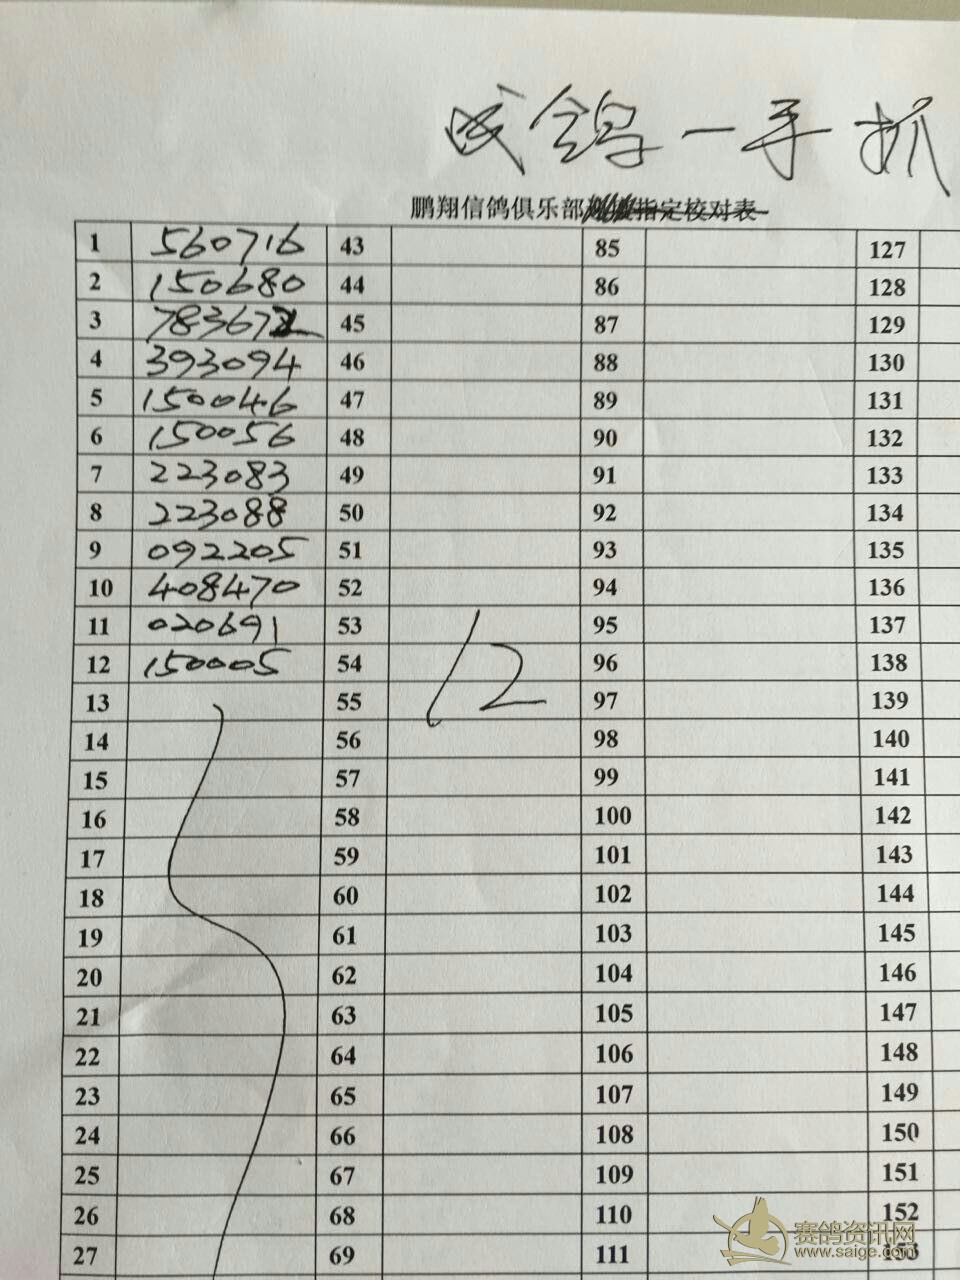 成鸽一手抓
鹏翔信鸽俱乐部 指定校对表
1 560716 43 85 127
2 150680 44 86 128
3 78367 45 87 129
4 393094 46 88 130
5 150046 47 89 131
6 150056 48 90 132
7 223083 49 91 133
8 223088 50 92 134
9 092205 51 93 135
10 408470 52 94 136
11 020691 53 95 137
12 150005 54 96 138
12
13 55 97 139
14 56 98 140
15 57 99 141
16 58 100 142
17 59 101 143
18 60 102 144
19 61 103 145
20 62 104 146
21 63 105 147
22 64 106 148
23 65 107 149
24 66 108 150
25 67 109 151
26 68 110 152
27 69 111 153
赛鸽资讯网
www.saige.com